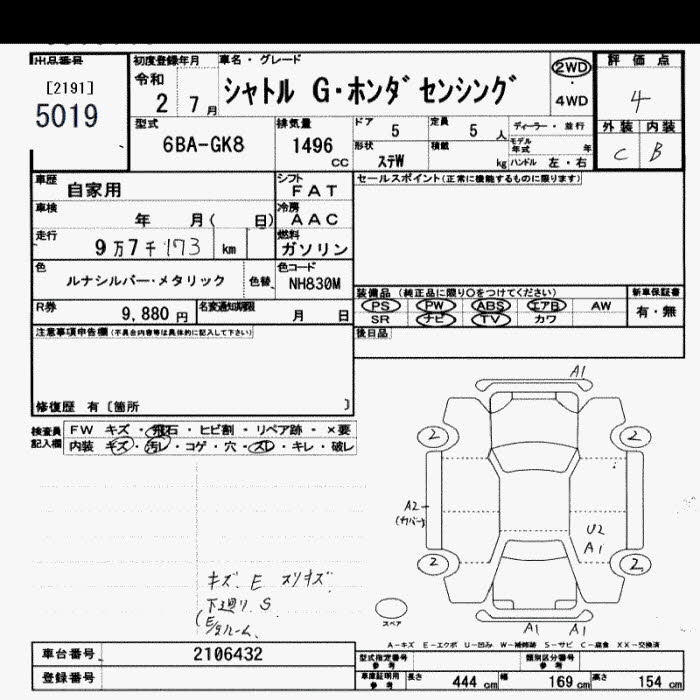 出品番号 初度登録年月 車名・グレード 2WD 評価点
[2191] 令和 シャトル G・ホンダセンシング 4
5019 2 7月 4WD
型式 排気量 ドア 5 定員 5人 ディーラー・並行 外装 内装
6BA-GK8 1496 cc 形状 ステW 積載 kg モデル年式 年 ハンドル 左・右 C B
車歴 自家用 シフト FAT セールスポイント(正常に機能するものに限ります)
車検 年 月( 日) 冷房 AAC
走行 9万7千173 km 燃料 ガソリン
色 ルナシルバー・メタリック 色替 色コード NH830M
装備品(純正品に限り○をつけてください) 新車保証書
R券 9,880円 名変通知期限 月 日 PS PW ABS エアB AW 有・無
SR ナビ TV カワ
注意事項申告欄(不具合内容等は具体的に記入して下さい) 後日品
修復歴 有〔箇所 〕
検査員記入欄 FW キズ・飛石・ヒビ割・リペア跡・×要
内装 キズ・汚レ・コゲ・穴・スレ・キレ・破レ
A1
2 2
A2
(カバー)
U2
A1
2 2
キズ E スリキズ
下廻り S
スペア
A1 A1
A-キズ E-エクボ U-凹み W-補修跡 S-サビ C-腐食 XX-交換済
車台番号 2106432 型式指定番号 参考 類別区分番号 参考
登録番号 車庫証明用 参考 長さ 444cm 幅 169cm 高さ 154cm